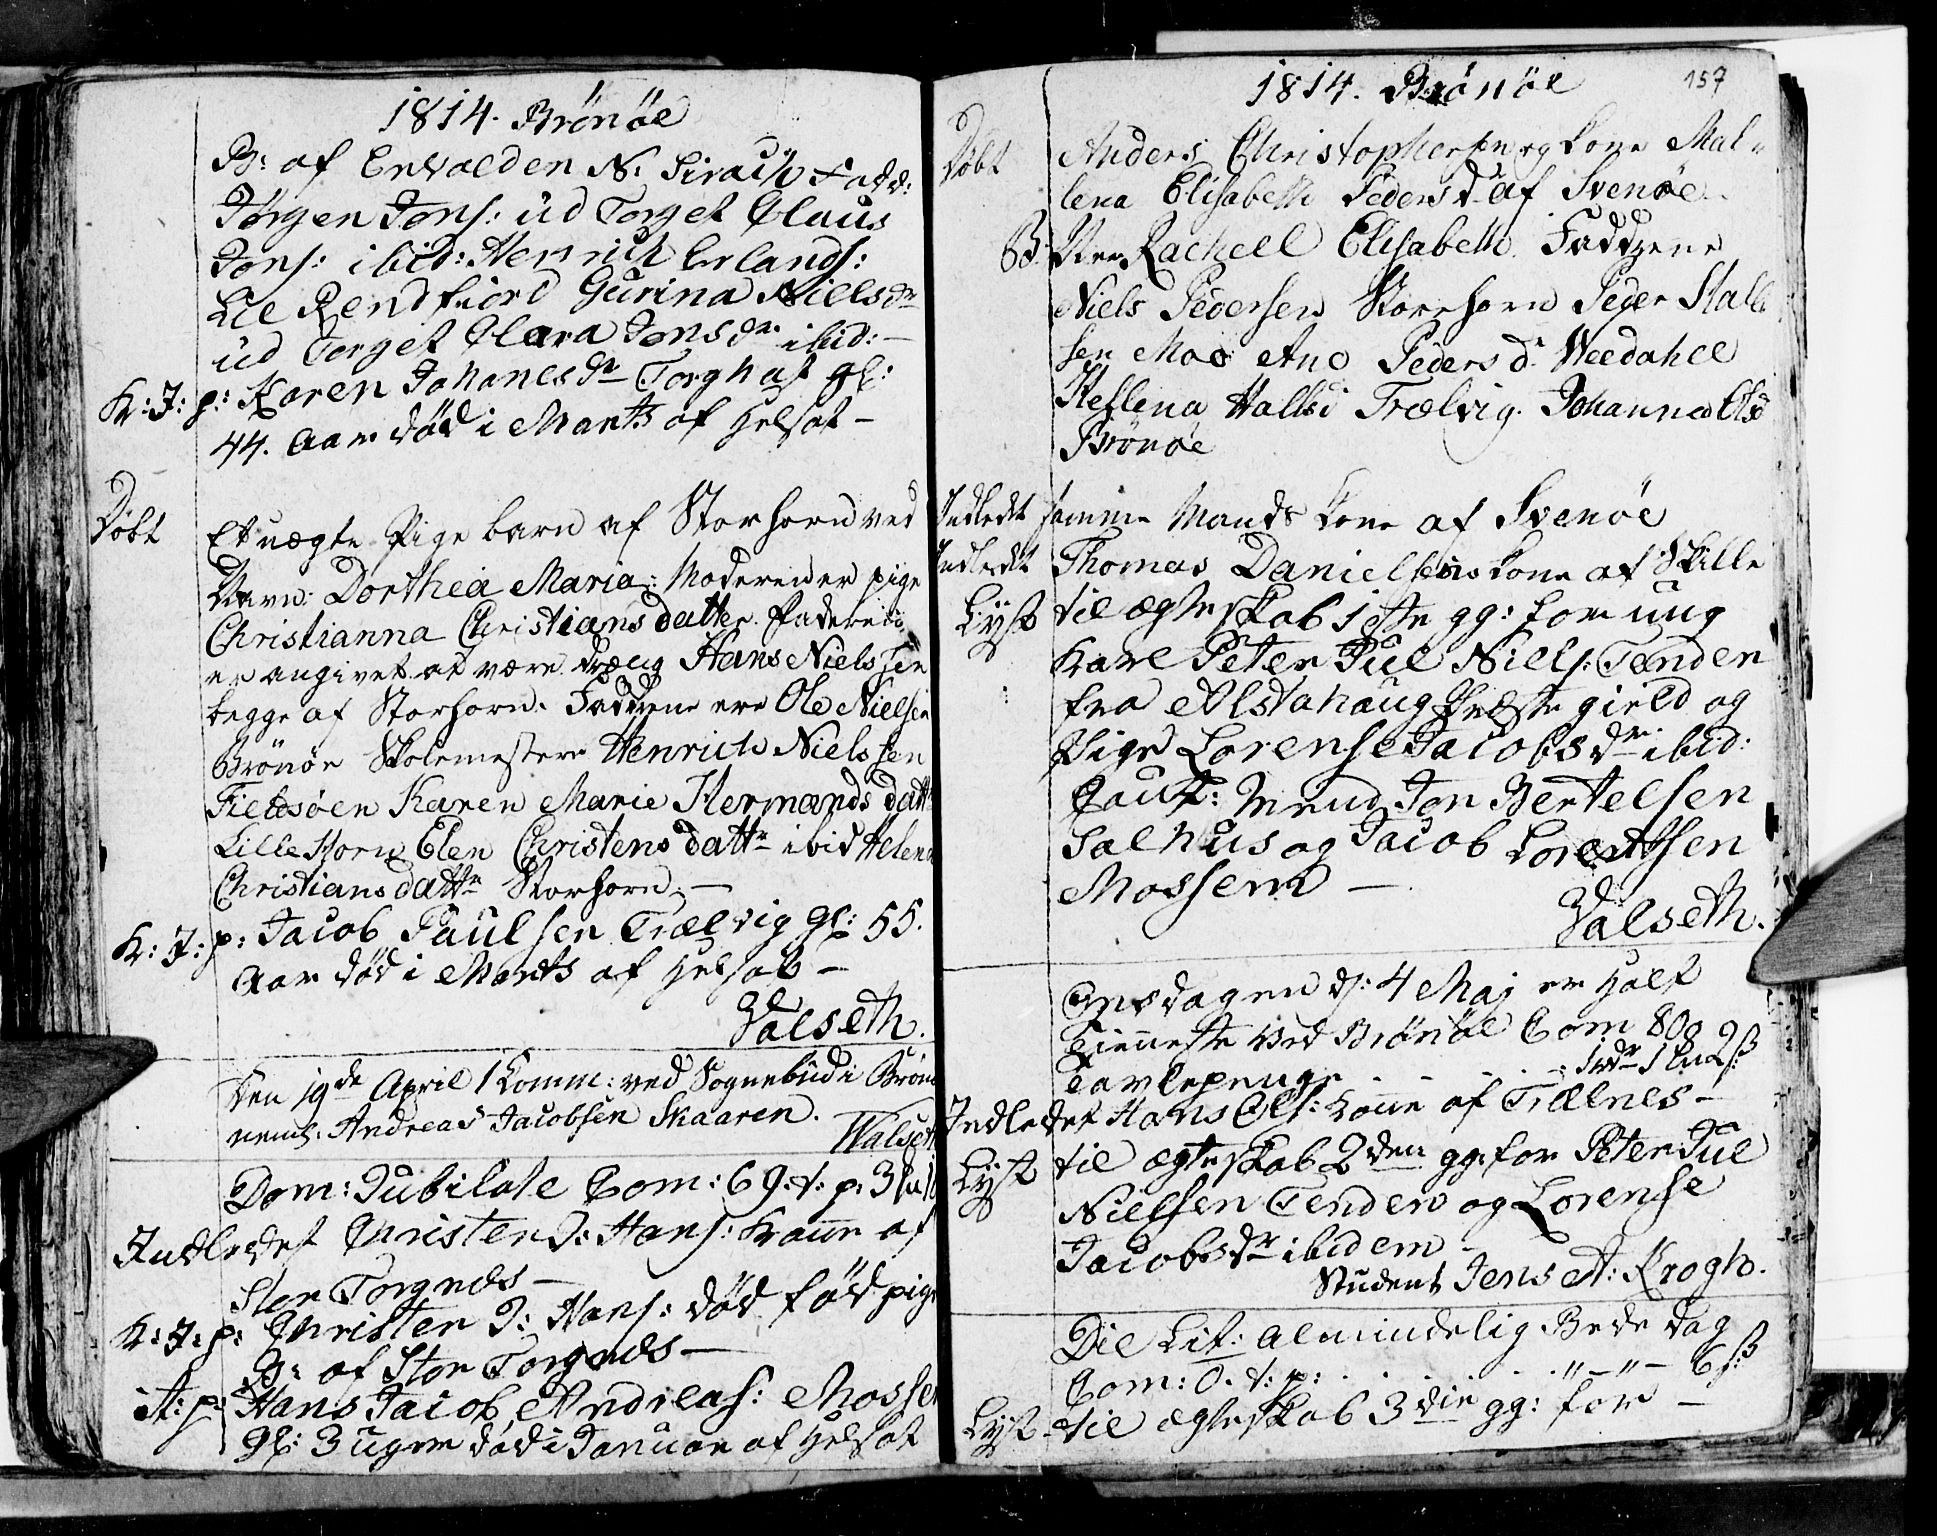 1814. Brönöe
B: af Envolden N: Sirach Fadd:
Jörgen Jons: ud Torget Claus
Jons: ibid: Henrich Erlands:
Lie Rendfiord Gurina Nielsdr
ud Torget Clara Jonsdr ibid: –
K: J: p: Karen Johanesdr Torghat gl:
44. Aar død i Marts af Helsot –
Döbt
Et uægte Pige barn af Storhorn ved
Navn: Dorthea Maria: Moderen er pige
Christianna Christians datter. Faderen
er angivet at være dræng Hans Nielssen
begge af Storhorn. Faddrene ere Ole Nielsen
Brönöe Skolemester Henrich Nielssen
Fieldsöen Karen Marie Hermands datt
Lille Horn Elen Christens dattr ibid Helena
Christians dattr Storhorn. –
K: J: p: Jacob Paulsen Trælvig gl: 55.
Aar død i Marts af Helsot –
Valseth.
Den 19de April 1 Comm: ved Sognebud i Brönö
neml: Andreas Jacobsen Skaaren.
Walset
Dom: Jubilate Com: 69. t: p: 3
Indledet Christen J: Hans: Kone af
Stor Torgnes –
K: J: p: Christen J: Hans: død fød pige
B: af Stor Torgnes –
it: p: Hans Jacob Andreas: Mossem
gl: 3 uger død i Januar af Helsot
1814. Brönöe
157
Döbt
Anders Christophersen og kone Mal-
lena Elisabeth Peders d. af Svenøe
B: Navn Rachell Elisabeth. Faddrene
Niels Pedersen Storhorn Peder Hall
sen Moe Ane Peders d: Weedahl
Hellena Halls d Trælvig. Johanna Ols d
Brönöe
Indledt samme Mands kone af Svenöe
Indledt Thomas Danielsens kone af Skille
Lyst til ægteskab 1ste gg: for ung
karl Peter Jul Niels: Tenden
fra Alstahaug Præstegield og
Pige Lorense Jacobsdr ibid:
Caut: Mend Jon Bertelsen
Salhus og Jacob Lorentssen
Mossem –
Valseth.
Onsdagen d: 4 Maj er Holt
Tienneste ved Brönöe Com 80
Tavlepenge . . . . . : 1 rdr 1 2 ß
Indledet Hans Ols: kone af Trælnes –
Lyst til ægteskab 2den gg: for Peter Jul
Nielsen Tenden og Lorense
Jacobsdr ibidem –
Student Jens A: Krogh.
Die Lit: Almindelig Bede dag
Com: 0. t: p: . . . . . " – " – 6 ß
Lyst til ægteskab 3die gg: for –